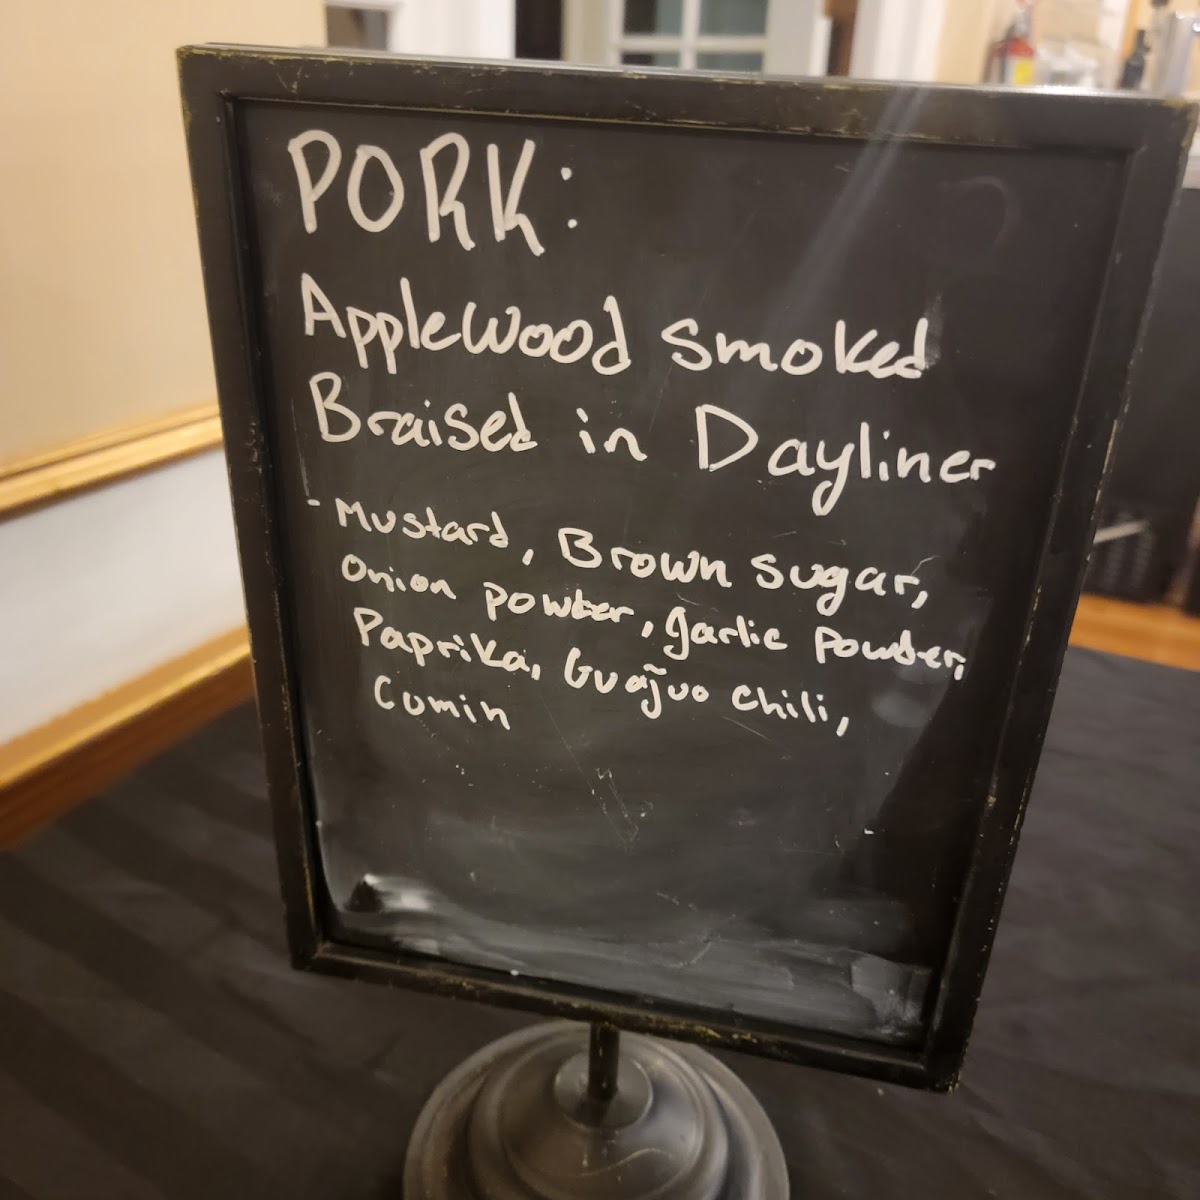 PORK:
Applewood smoked
Braised in Dayliner
- Mustard, Brown sugar,
Onion powder, garlic powder,
Paprika, Guãjuo chili,
Cumin